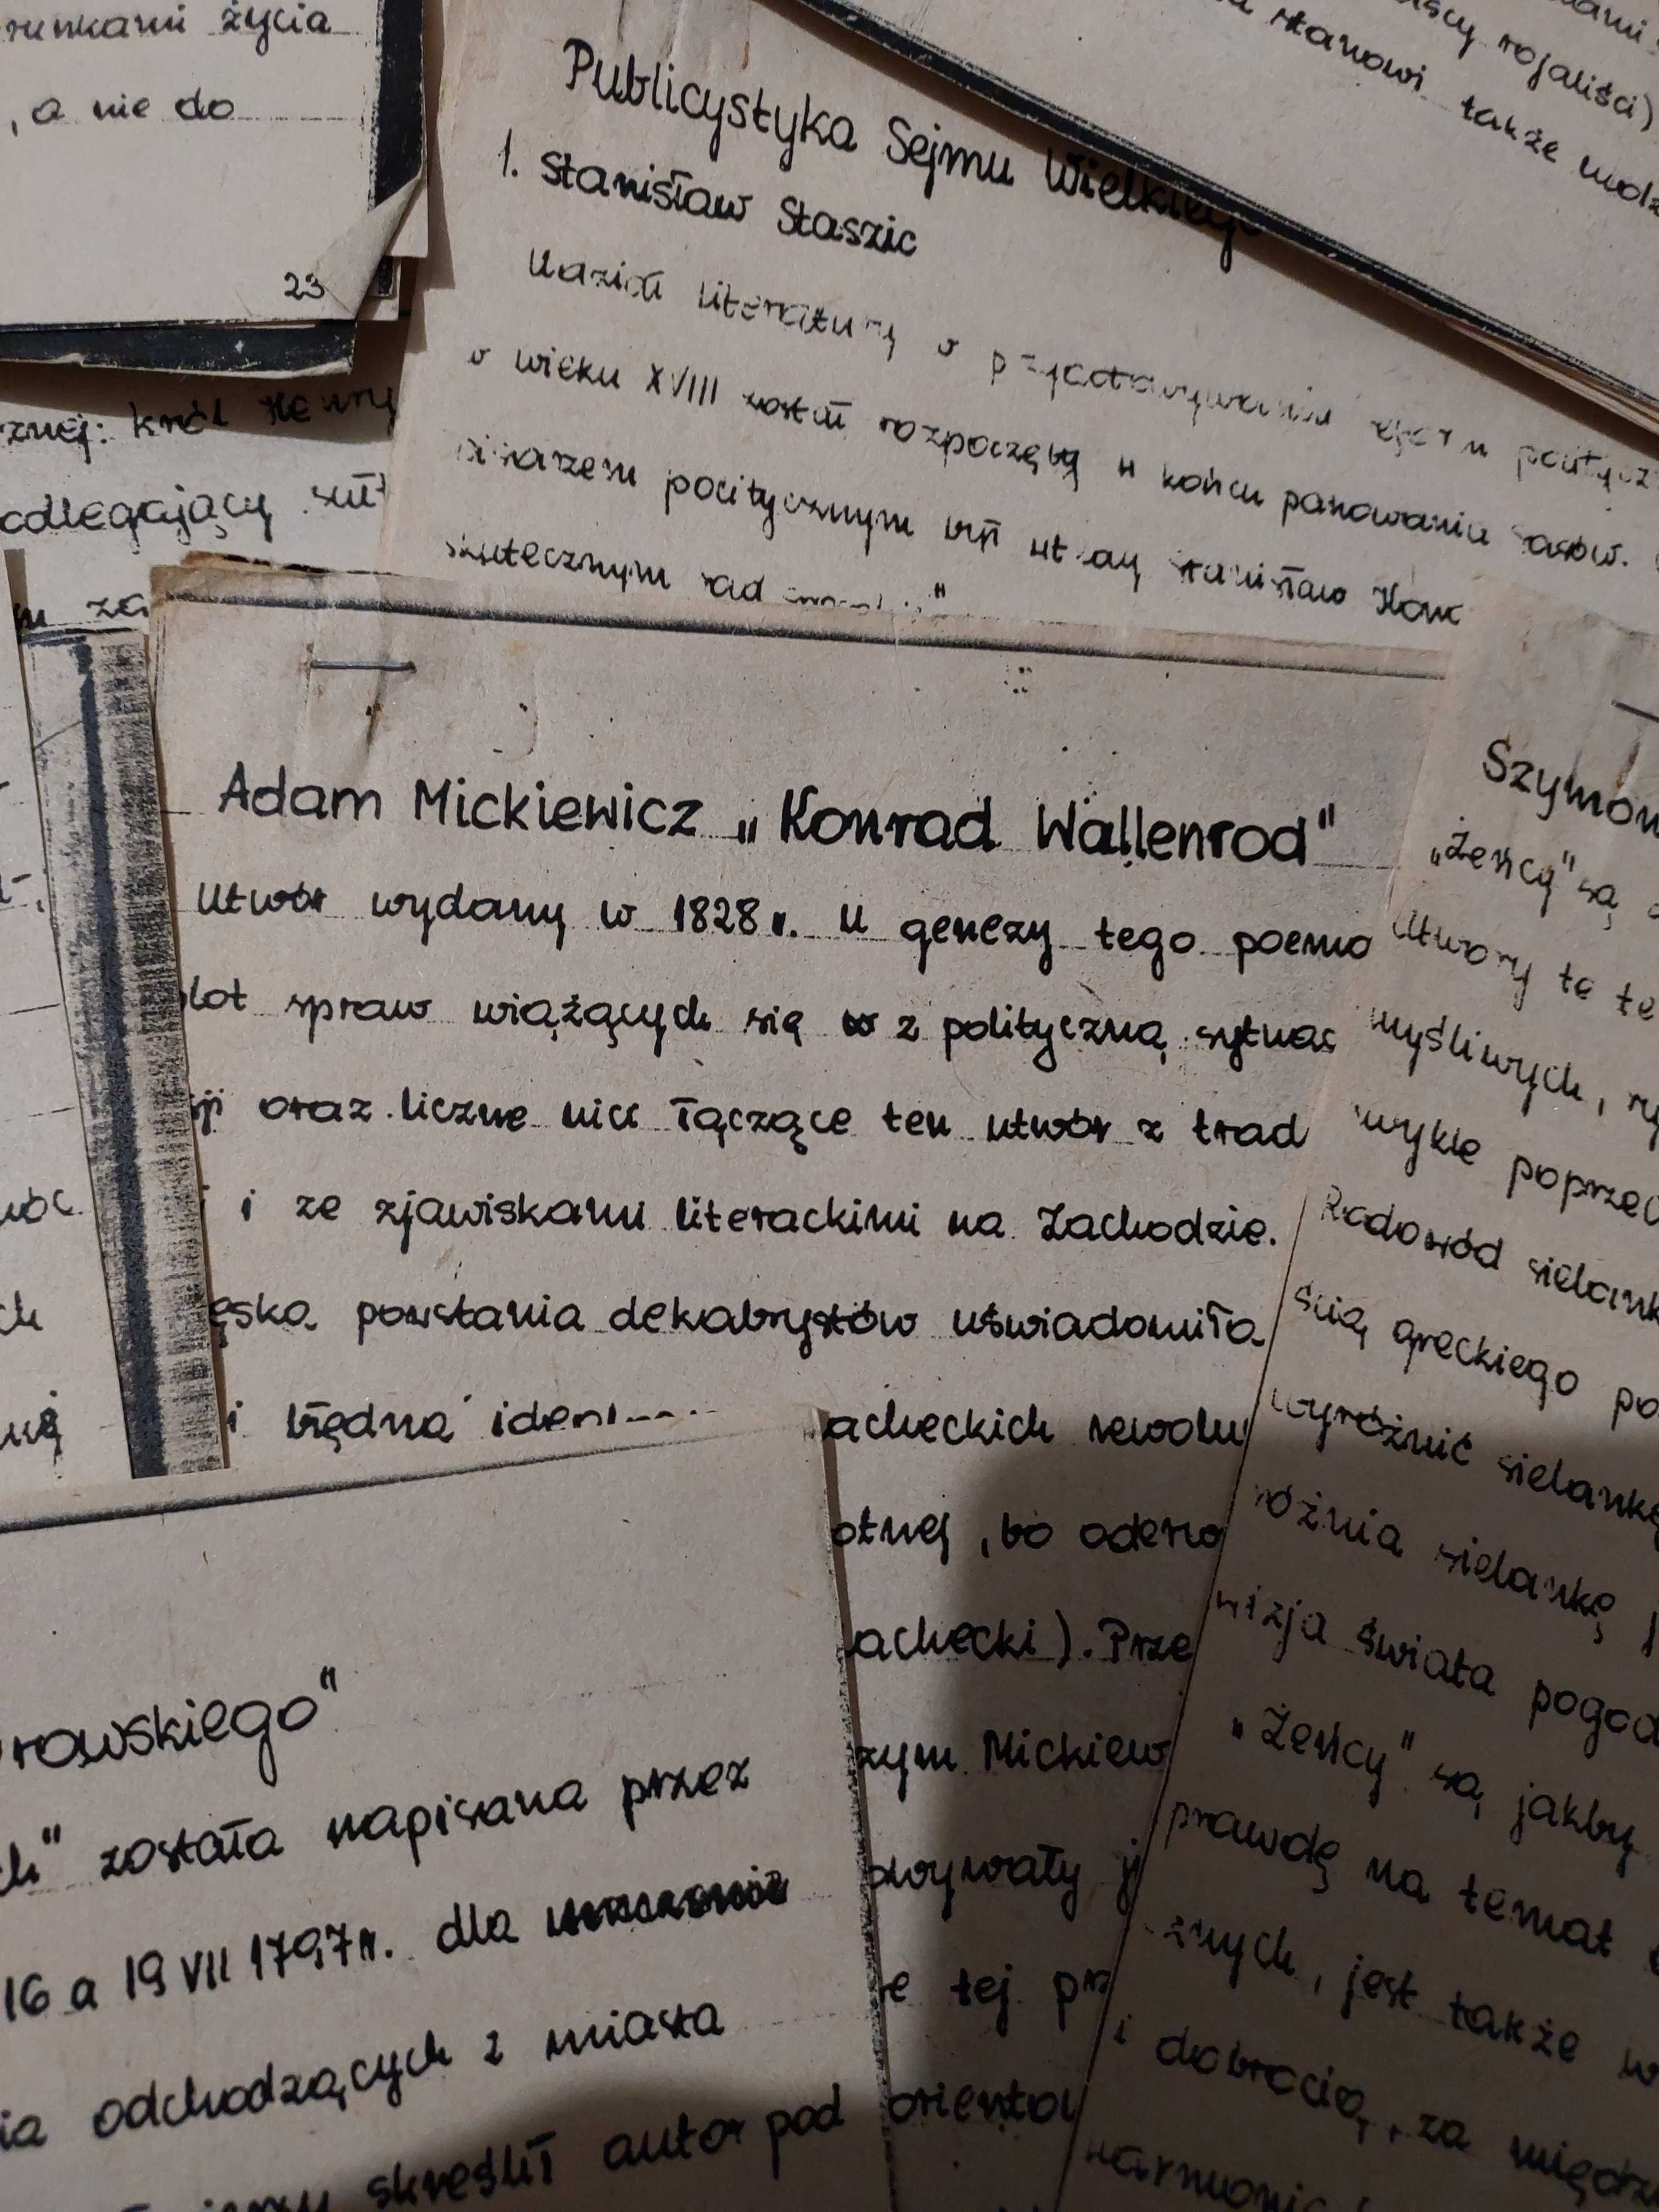 runkami życia
, a nie do
23
znej: król
adlegający
za
Publicystyka Sejmu Wielkiego
1. Stanisław Staszic
Udział literatury w politycz
w wieku XVIII został rozpoczęty u końcu panowania Sasów.
pisarzem politycznym był Stanisław Kona
skutecznym rad
rojaliści)
stanowi także
Adam Mickiewicz „Konrad Wallenrod"
Utwór wydany w 1828 r. U genezy tego poema
plot spraw wiążących się w z polityczną sytuac
ji oraz liczne nici łączące ten utwór z trad
i i ze zjawiskami literackimi na Zachodzie.
ęska powstania dekabrystów uświadomiła
i błędną acheckich rewolu
otnej, bo oderw
achecki). Prze
zym Mickiew
owywały j
e tej pr
orientow
Szymon
„Żeńcy" są
Utwory te te
myśliwych, ry
wykle poprzed
Rodowód sielank
ścią greckiego po
wyróżnić sielankę
różnia sielankę
wizja świata pogod
„Żeńcy" są jakby
prawdę na temat
znych, jest także w
i dobrocią, za międz
harmonię
rowskiego"
ch" została napisana przez
16 a 19 VII 1797 r. dla
ia odchodzących z miasta
skreślił autor pod